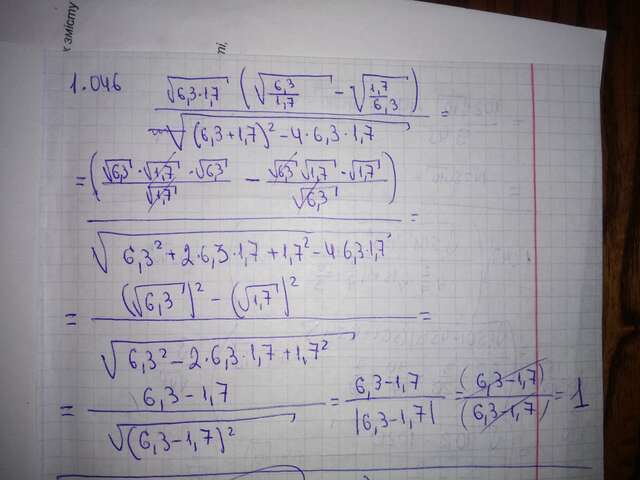 к змісту
ті,
1.046
√(6,3·1,7) (√(6,3/1,7) - √(1,7/6,3)) / √((6,3+1,7)² - 4·6,3·1,7) =
= (√6,3·√1,7·√6,3 / √1,7 - √6,3·√1,7·√1,7 / √6,3) / √(6,3² + 2·6,3·1,7 + 1,7² - 4·6,3·1,7) =
= ((√6,3)² - (√1,7)²) / √(6,3² - 2·6,3·1,7 + 1,7²) =
= (6,3 - 1,7) / √((6,3 - 1,7)²) = (6,3 - 1,7) / |6,3 - 1,7| = (6,3 - 1,7) / (6,3 - 1,7) = 1